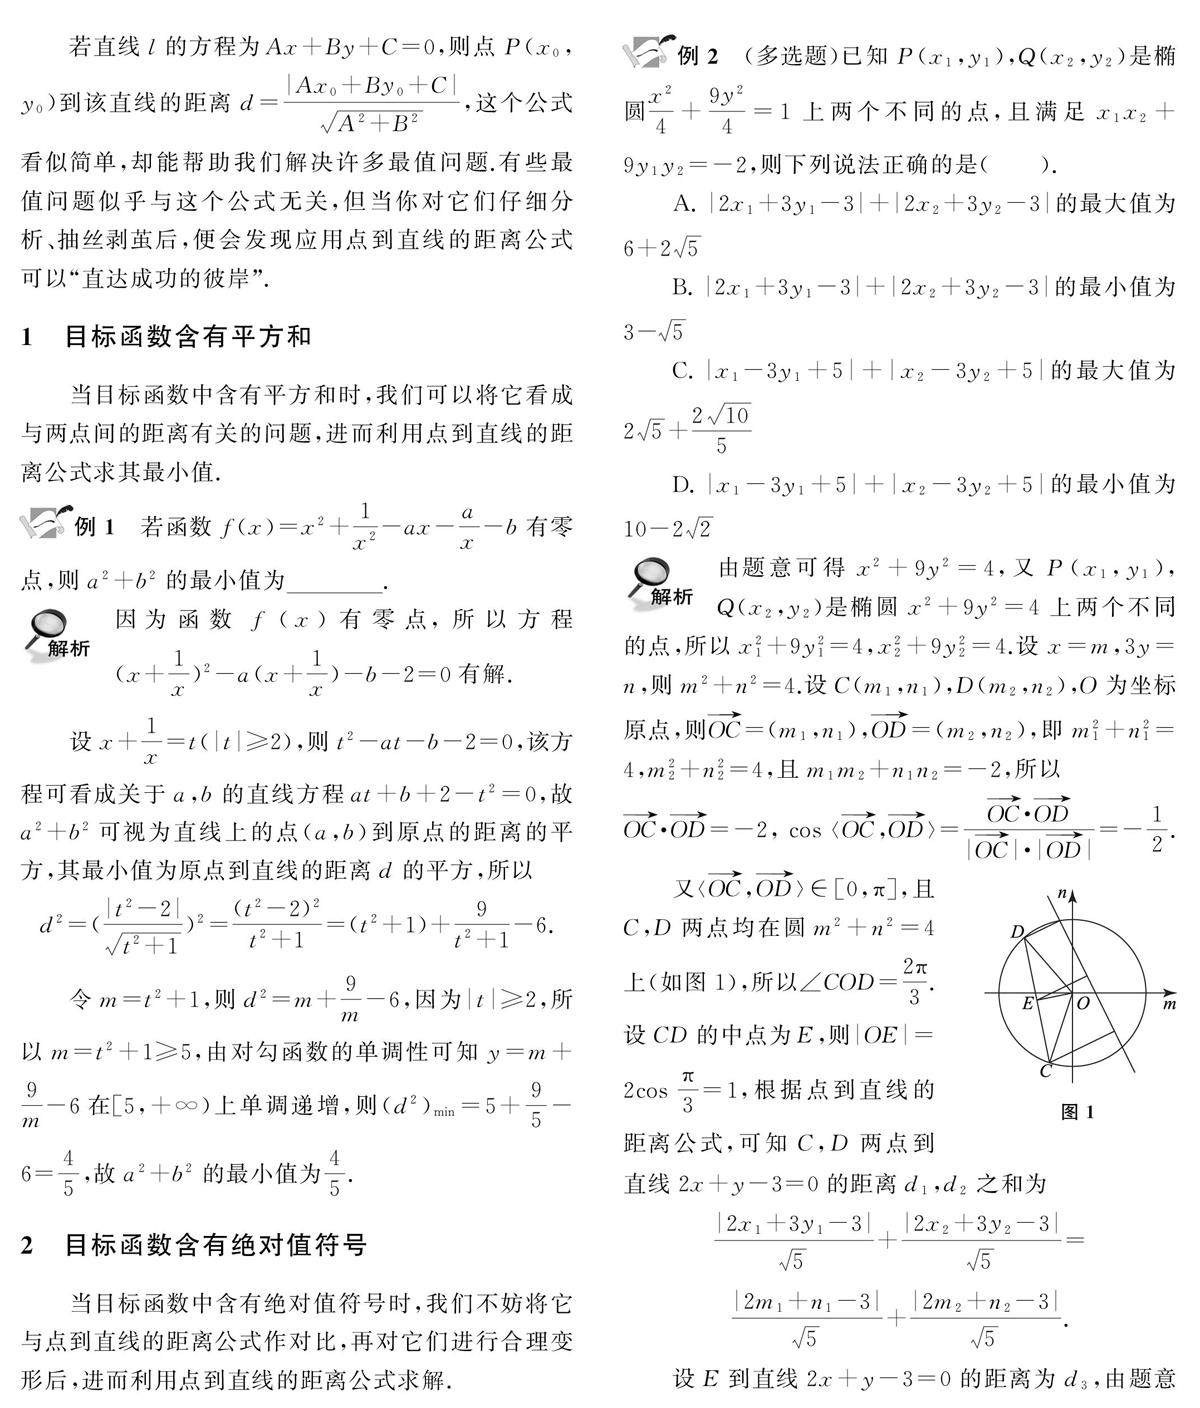 若直线 l 的方程为 Ax+By+C=0,则点 P(x₀,
y₀)到该直线的距离 d=|Ax₀+By₀+C|/√(A²+B²),这个公式
看似简单,却能帮助我们解决许多最值问题.有些最
值问题似乎与这个公式无关,但当你对它们仔细分
析、抽丝剥茧后,便会发现应用点到直线的距离公式
可以“直达成功的彼岸”.
1 目标函数含有平方和
当目标函数中含有平方和时,我们可以将它看成
与两点间的距离有关的问题,进而利用点到直线的距
离公式求其最小值.
例 1 若函数 f(x)=x²+1/x²-ax-a/x-b 有零
点,则 a²+b² 的最小值为________.
解析 因为函数 f(x)有零点,所以方程
(x+1/x)²-a(x+1/x)-b-2=0 有解.
设 x+1/x=t(|t|≥2),则 t²-at-b-2=0,该方
程可看成关于 a,b 的直线方程 at+b+2-t²=0,故
a²+b² 可视为直线上的点(a,b)到原点的距离的平
方,其最小值为原点到直线的距离 d 的平方,所以
d²=(|t²-2|/√(t²+1))²=(t²-2)²/(t²+1)=(t²+1)+9/(t²+1)-6.
令 m=t²+1,则 d²=m+9/m-6,因为|t|≥2,所
以 m=t²+1≥5,由对勾函数的单调性可知 y=m+
9/m-6 在[5,+∞)上单调递增,则(d²)min=5+9/5-
6=4/5,故 a²+b² 的最小值为4/5.
2 目标函数含有绝对值符号
当目标函数中含有绝对值符号时,我们不妨将它
与点到直线的距离公式作对比,再对它们进行合理变
形后,进而利用点到直线的距离公式求解.
例 2 (多选题)已知 P(x₁,y₁),Q(x₂,y₂)是椭
圆x²/4+9y²/4=1 上两个不同的点,且满足 x₁x₂+
9y₁y₂=-2,则下列说法正确的是( ).
A. |2x₁+3y₁-3|+|2x₂+3y₂-3|的最大值为
6+2√5
B. |2x₁+3y₁-3|+|2x₂+3y₂-3|的最小值为
3-√5
C. |x₁-3y₁+5|+|x₂-3y₂+5|的最大值为
2√5+2√10/5
D. |x₁-3y₁+5|+|x₂-3y₂+5|的最小值为
10-2√2
解析 由题意可得 x²+9y²=4,又 P(x₁,y₁),
Q(x₂,y₂)是椭圆 x²+9y²=4 上两个不同
的点,所以 x₁²+9y₁²=4,x₂²+9y₂²=4.设 x=m,3y=
n,则 m²+n²=4.设 C(m₁,n₁),D(m₂,n₂),O 为坐标
原点,则→OC=(m₁,n₁),→OD=(m₂,n₂),即 m₁²+n₁²=
4,m₂²+n₂²=4,且 m₁m₂+n₁n₂=-2,所以
→OC·→OD=-2, cos〈→OC,→OD〉=→OC·→OD/(|→OC|·|→OD|)=-1/2.
又〈→OC,→OD〉∈[0,π],且
C,D 两点均在圆 m²+n²=4
上(如图 1),所以∠COD=2π/3.
设 CD 的中点为 E,则|OE|=
2cos π/3=1,根据点到直线的
距离公式,可知 C,D 两点到
n
D
E
O
m
C
图 1
直线 2x+y-3=0 的距离 d₁,d₂ 之和为
|2x₁+3y₁-3|/√5+|2x₂+3y₂-3|/√5=
|2m₁+n₁-3|/√5+|2m₂+n₂-3|/√5.
设 E 到直线 2x+y-3=0 的距离为 d₃,由题意